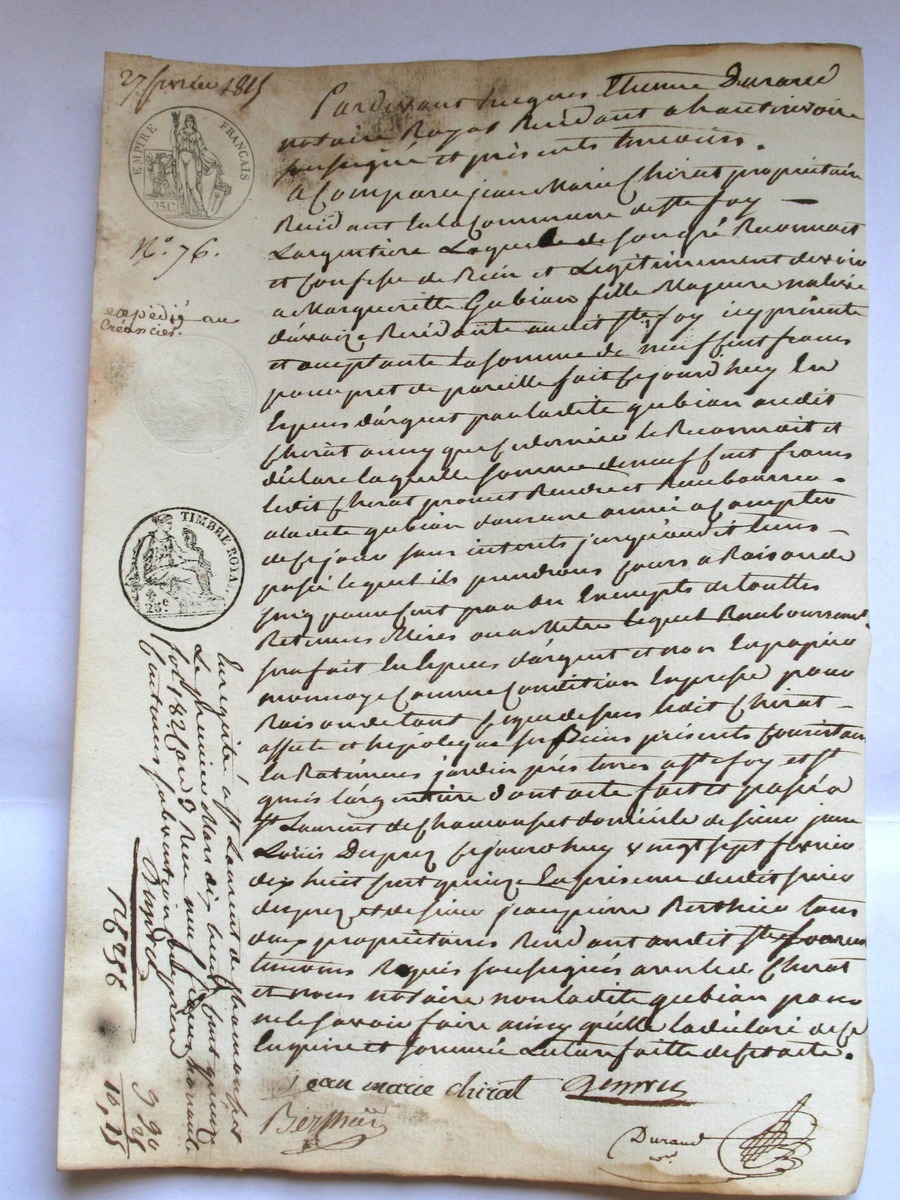 27 fevrier 1815
EMPIRE FRANÇAIS
25C
N.o 76.
expédié au
Créancier.
TIMBRE ROYAL
25c
Pardevant hugues Etienne Durand
notaire Royal Residant a hauterivoire
soussigné et présents temoins.
a Comparu jean Marie Chirat propriétaire
Residant en la Commune de ste foy
Largentiere Lequel de Son gré Reconnait
et Confesse de bien et Legitimement devoir
a Marguerite Gubian fille Majeure native
d'avaize Residante audit ste foy icy présente
et acceptante la Somme de neuf Cent francs
pour pret de pareille fait Cejourd'huy En
Especes d'argent par ladite gubian audit
Chirat ainsy que Ce dernier le Reconnait et
déclare laquelle Somme de neuf Cent francs
ledit Chirat promet Rendre et Rembourser
a ladite gubian dans une année a Compter
de Ce jour Sans interets jusqu'audit tems
passé lequel ils prendrons Cours a Raison de
Cinq pour Cent par an Exempts de touttes
Retenues lequel Remboursement
Sera fait En Espece d'argent et non En papier
monnoye Comme Condition Expresse pour
Raison de tout Ce que dessus ledit Chirat
affecte et hipoteque Ses Biens présents Consistant
En Batimens jardin prés terres a ste foy et st
genis l'argentiere dont acte fait et passé a
st Laurent de Chamousset domicile de sieur jean
Louis Dupuy Cejourd'huy vingt Sept fevrier
dix huit Cent quinze En présence dudit Sieur
dupuy et de Sieur jean pierre Berthier tous
deux propriétaires Residant audit
temoins Requis Soussignés avec led. Chirat
et nous notaire non ladite gubian pour
ne le Savoir faire ainsy qu'elle l'a déclaré de Ce
Enquise et Sommée Lecture faitte de Cet acte.
jean marie chirat
Berthier
Durand
Enregistré a st Laurent de Chamousset
Le premier Mars dix huit Cent quinze
fol. 182 Reçu neuf francs
Contimes Subvention
9 90
25
10,15